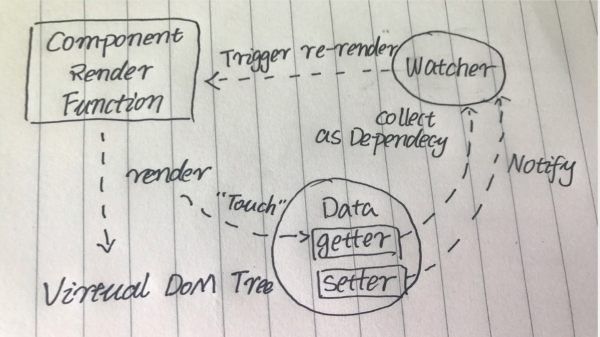 Component
Render
Function
Trigger re-render
Watcher
collect
as Dependecy
Notify
render
"Touch"
Data
getter
setter
Virtual DOM Tree